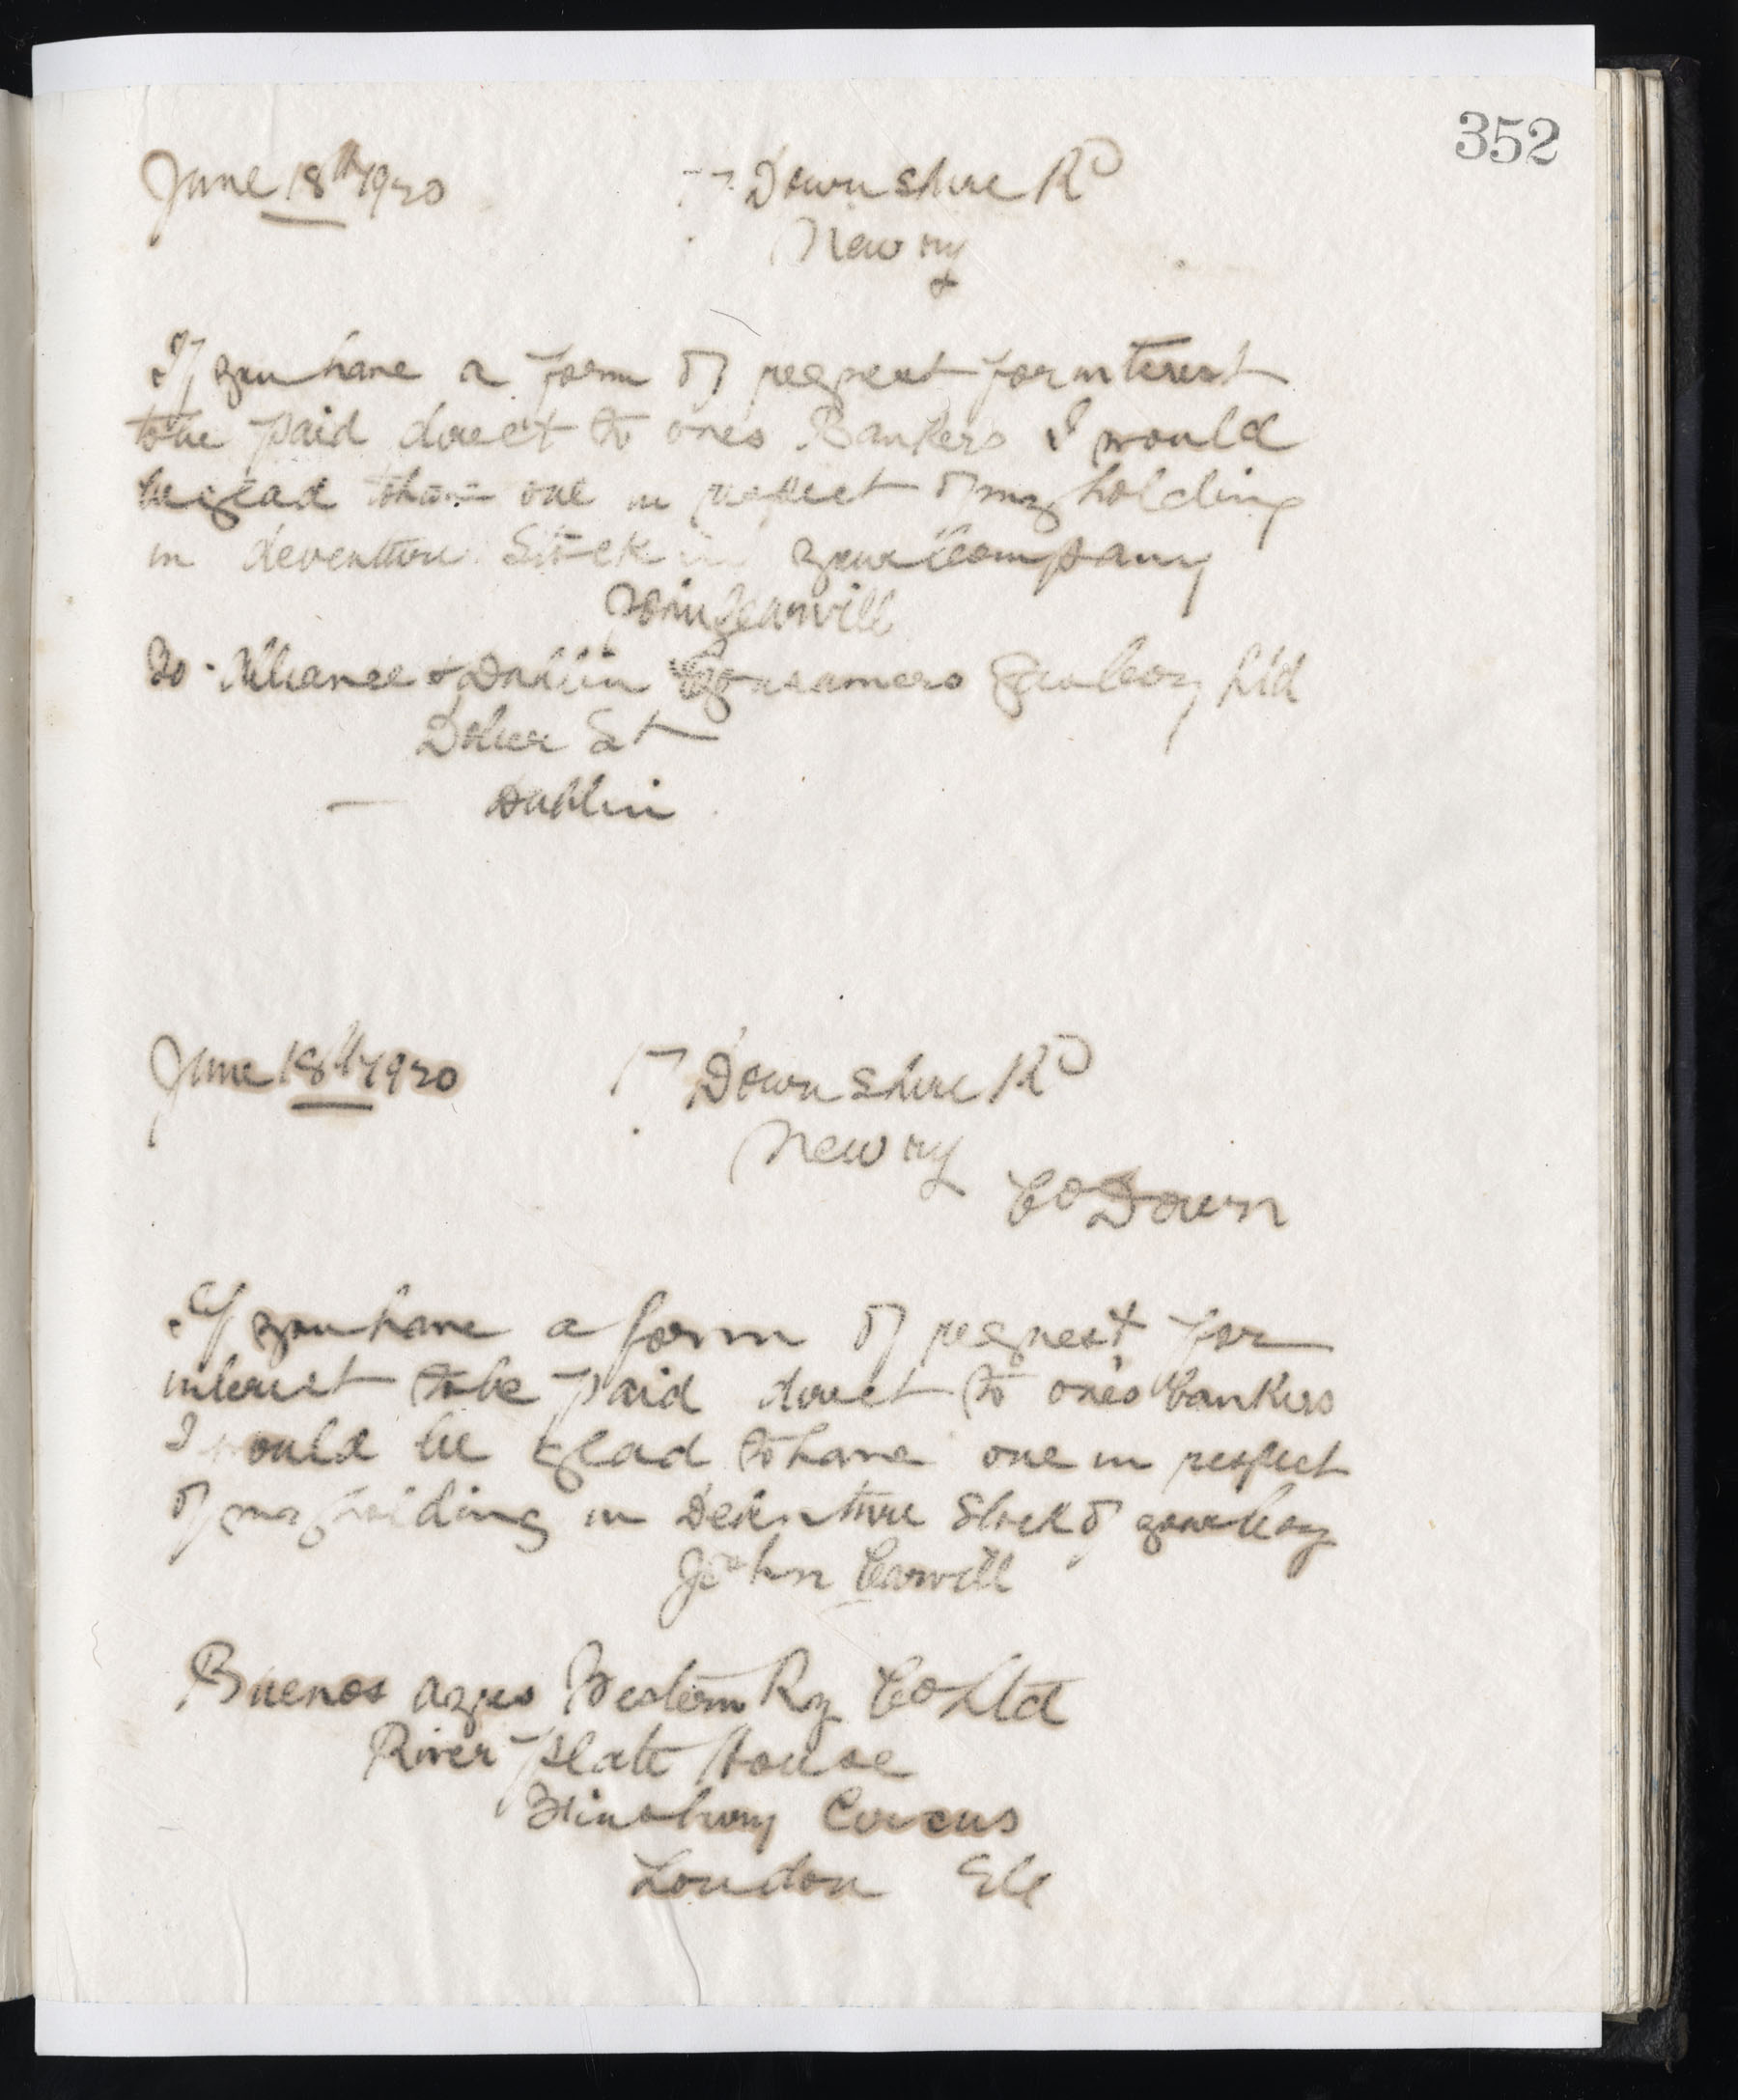 352
June 18th 1920 17 Downshire Rd
Newry
If you have a form of request for interest
to be paid direct to ones Bankers I would
be glad to have one in respect of my holding
in deventure Stock in your Company
John Carvill
To Alliance & Dublin Consumers Gas Coy Ltd
Dolier St
Dublin
June 18th 1920 17 Downshire Rd
Newry
Co Down
If you have a form of request for
interest to be paid direct to one's bankers
I would be glad to have one in respect
of my holding in Debenture Stock of your Coy
John Carvill
Buenos Ayres Western Ry Co Ltd
River Plate House
Finsbury Circus
London EC